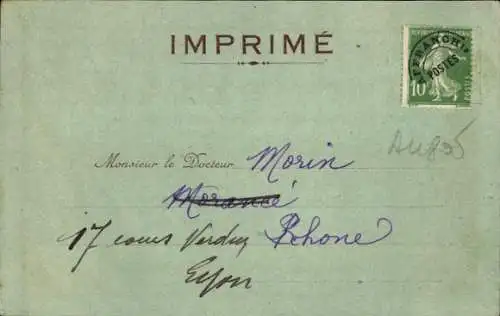 IMPRIMÉ
AFFRANCHts
POSTES
10
Monsieur le Docteur Morin
Morancé
17 cours Verdun Rhone
Lyon